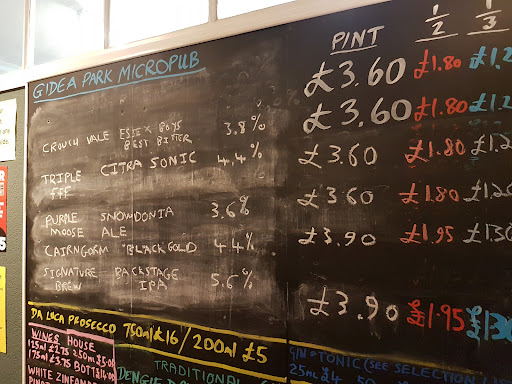 GIDEA PARK MICROPUB
PINT 1/2 1/3
£3.60 £1.80
CROUCH VALE ESSEX BOYS BEST BITTER 3.8% £3.60 £1.80
TRIPLE FFF CITRA SONIC 4.4% £3.60 £1.80
PURPLE MOOSE SNOWDONIA ALE 3.6% £3.60 £1.80 £1.20
CAIRNGORM BLACK GOLD 4.4% £3.90 £1.95 £1.30
SIGNATURE BREW BACKSTAGE IPA 5.6% £3.90 £1.95 £1.30
DA LUCA PROSECCO 750ml £16 / 200ml £5
WINES HOUSE
125ml £2.75 250ml £5.00
175ml £3.75 BOTT £14.00
WHITE ZINFANDEL
TRADITIONAL
GIN & TONIC (SEE SELECTION
25ml £4